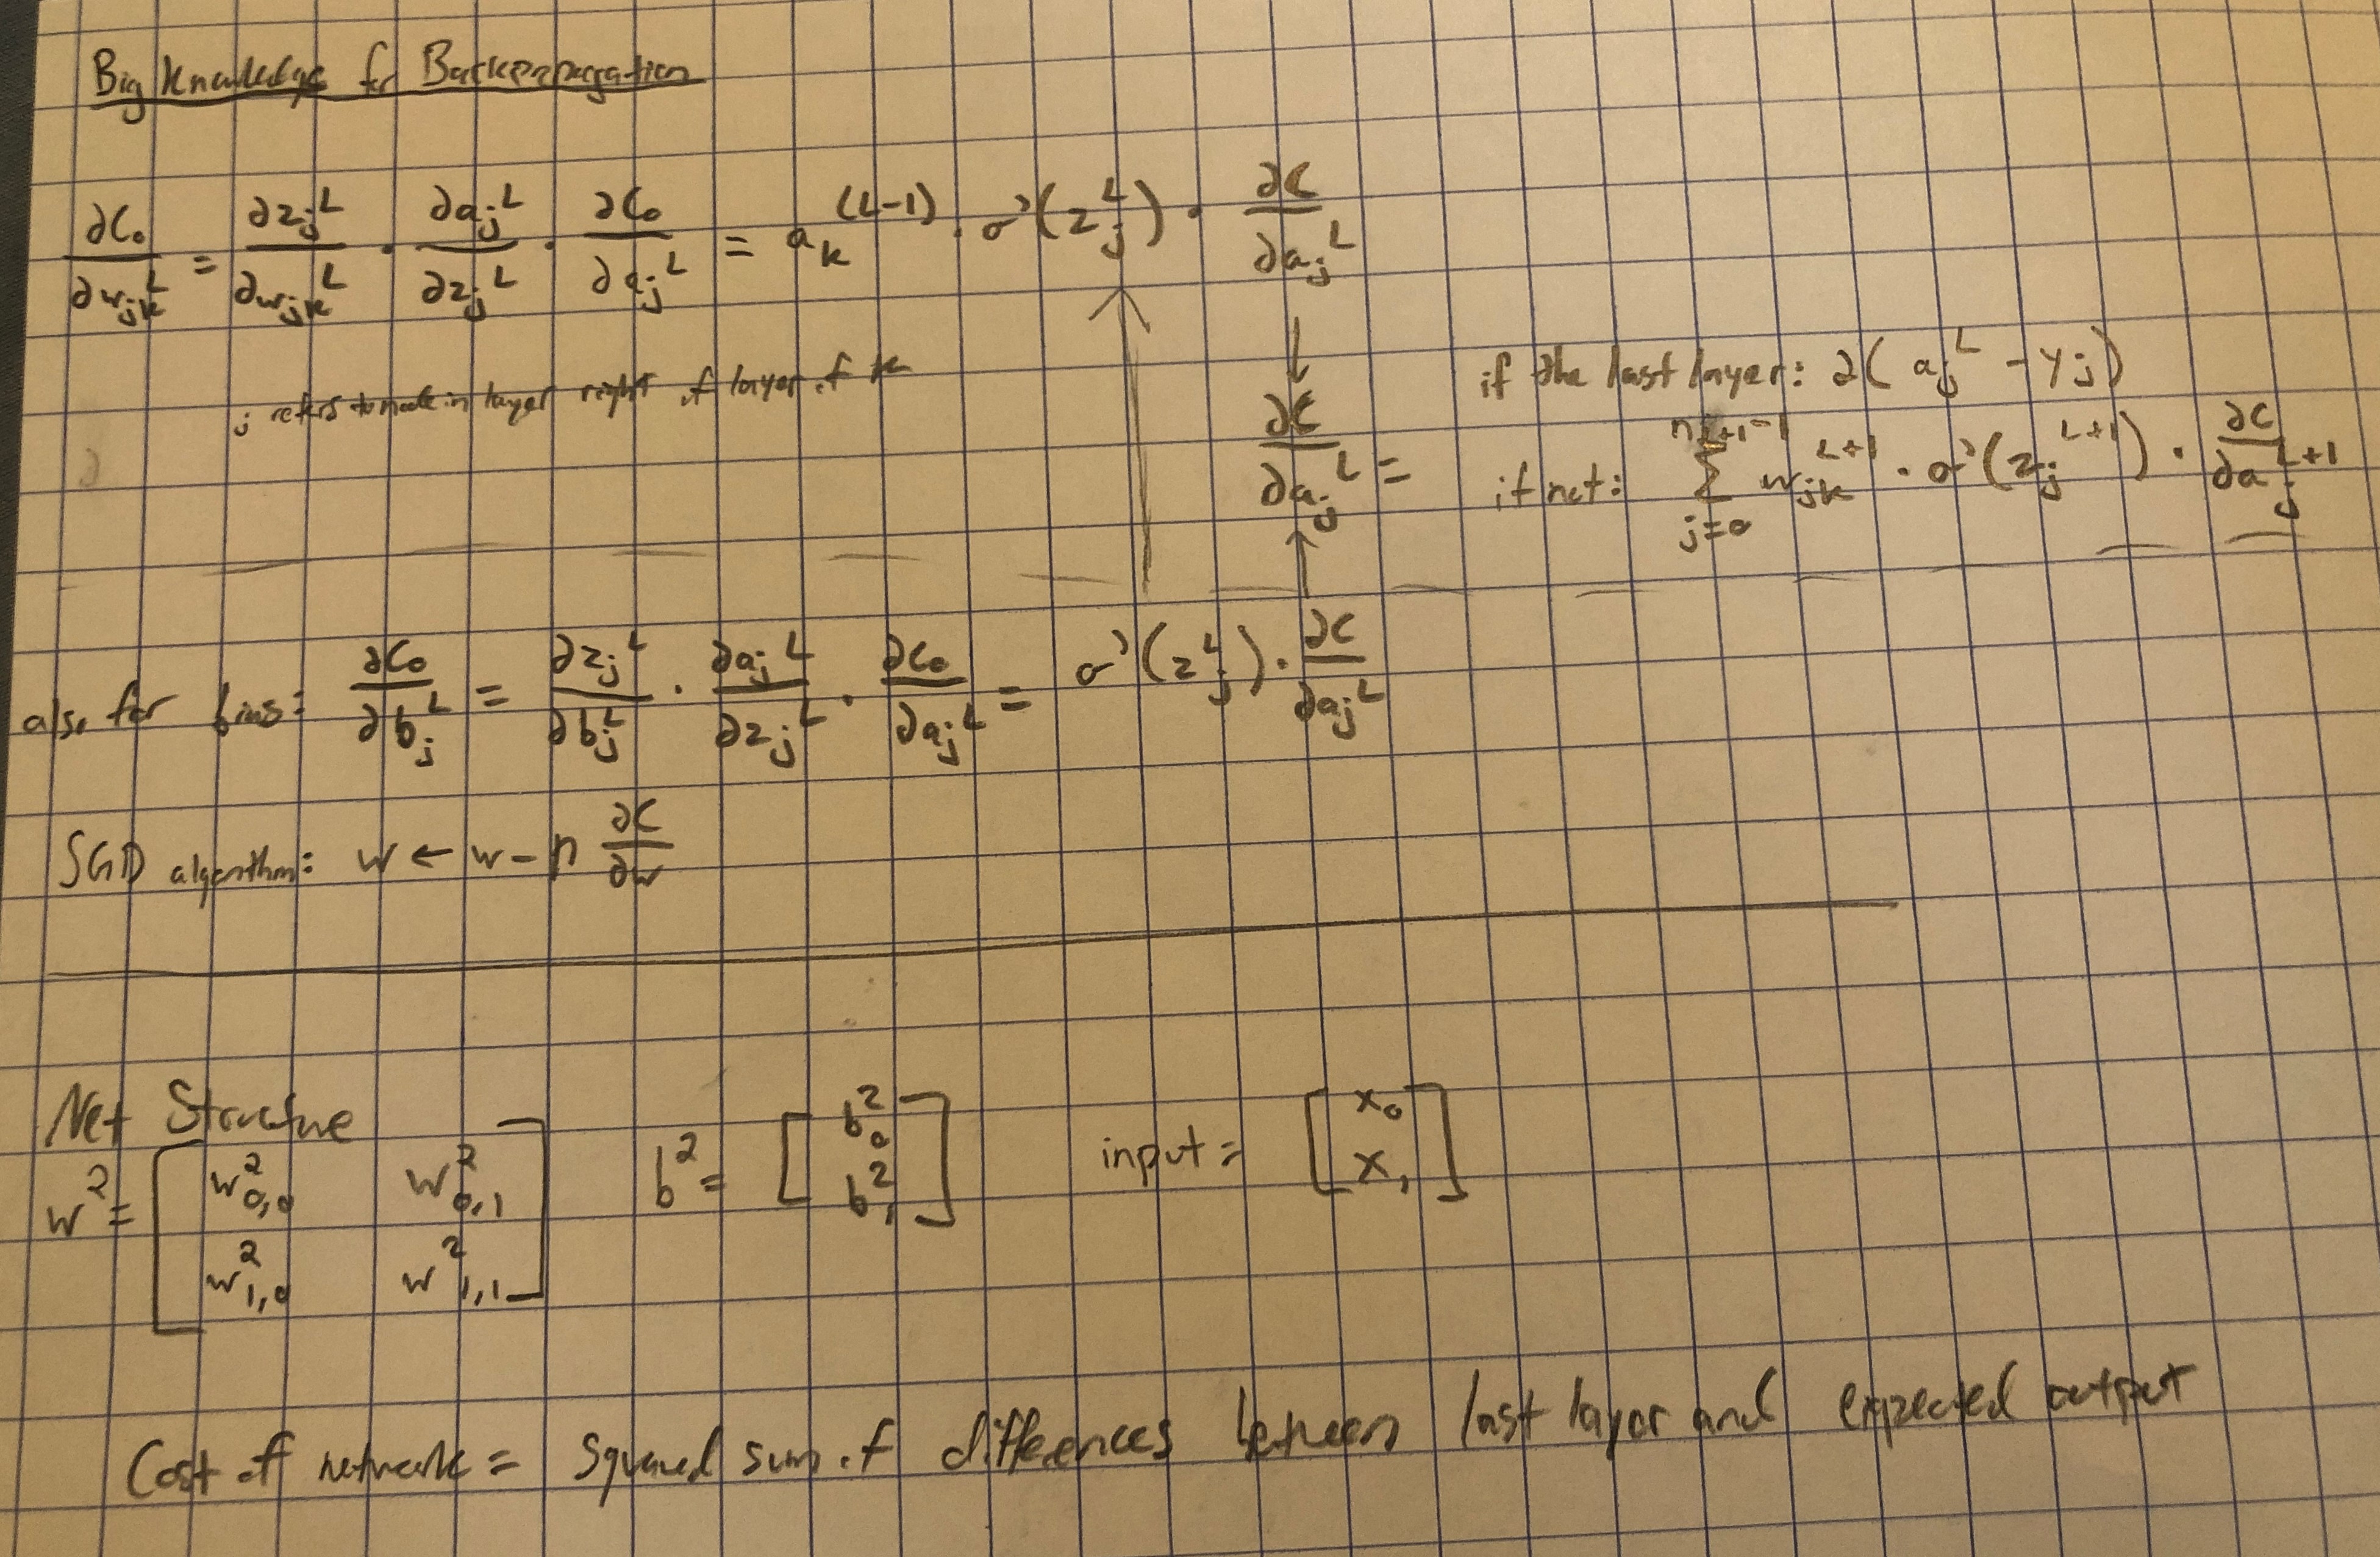 Big Knowledge for Backpropagation
∂C₀/∂w_jk^L = ∂z_j^L/∂w_jk^L · ∂a_j^L/∂z_j^L · ∂C₀/∂a_j^L = a_k^(L-1) · σ'(z_j^L) · ∂C/∂a_j^L
j refers to node in layer right of layer of k
∂C/∂a_j^L =
if the last layer: 2(a_j^L - y_j)
if not: Σ_{j=0}^{n_{L+1}-1} w_jk^{L+1} · σ'(z_j^{L+1}) · ∂C/∂a_j^{L+1}
also for bias: ∂C₀/∂b_j^L = ∂z_j^L/∂b_j^L · ∂a_j^L/∂z_j^L · ∂C₀/∂a_j^L = σ'(z_j^L) · ∂C/∂a_j^L
SGD algorithm: w ← w - η ∂C/∂w
Net Structure
w² = [ w²_{0,0} w²_{0,1} ; w²_{1,0} w²_{1,1} ] b² = [ b²_0 ; b²_1 ] input = [ x₀ ; x₁ ]
Cost of network = Squared sum of differences between last layer and expected output